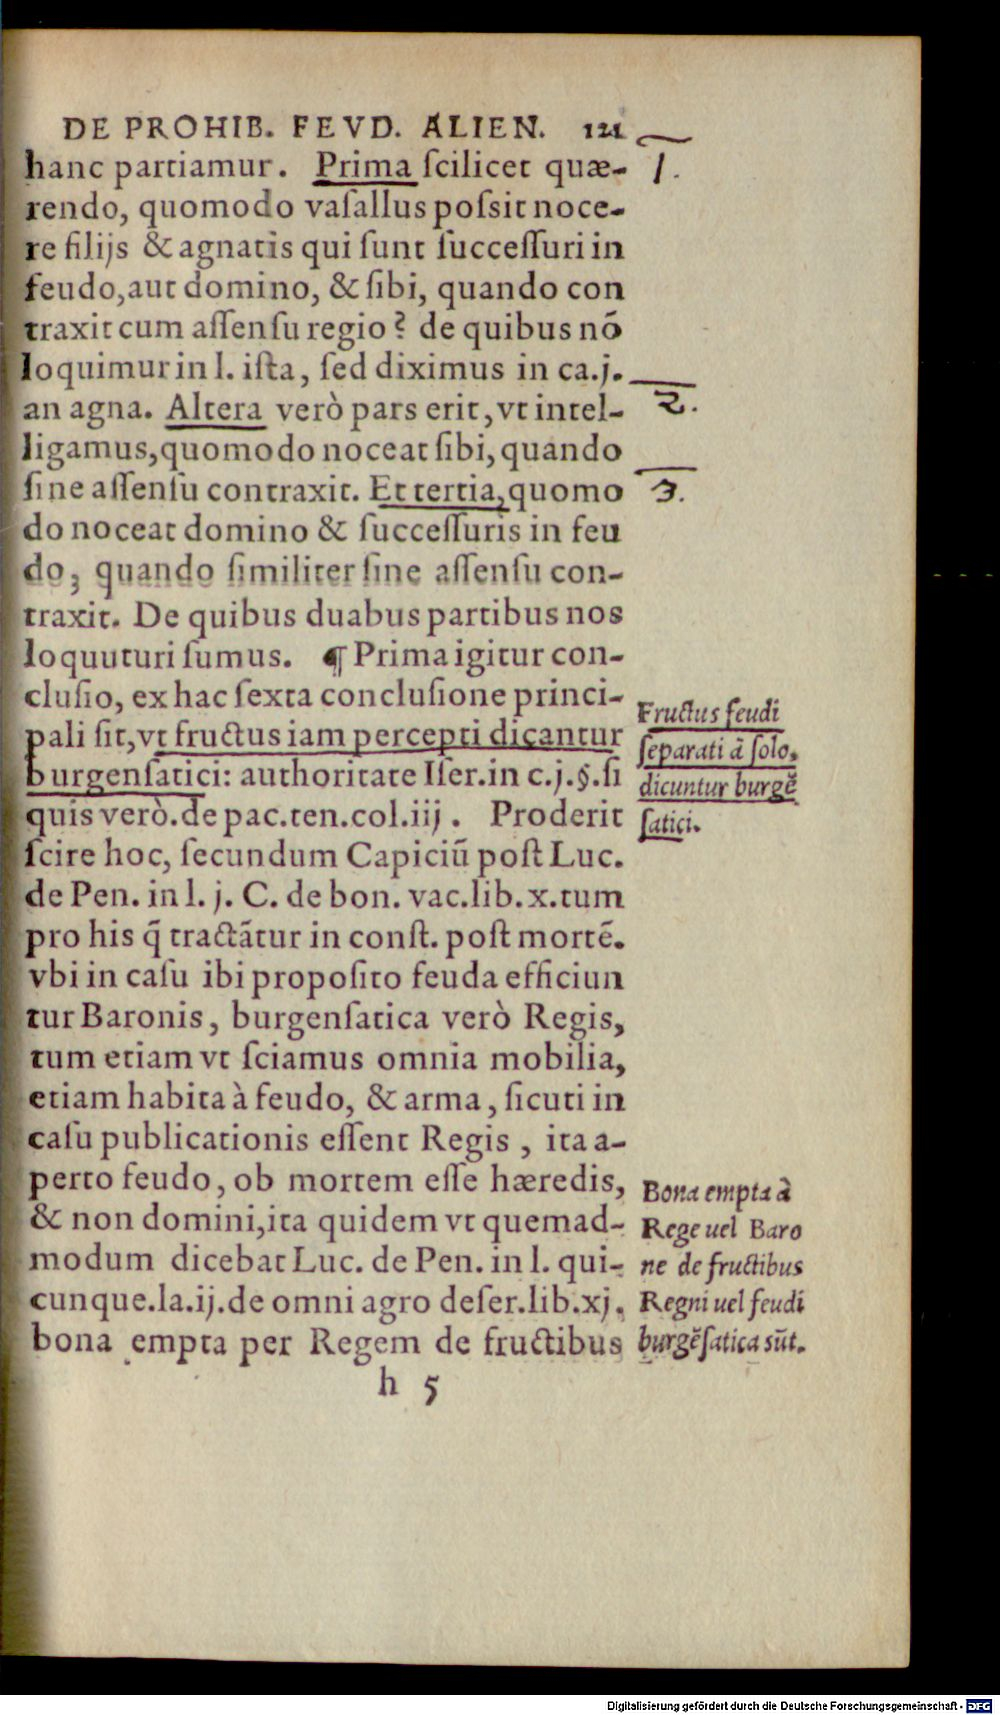 DE PROHIB. FEVD. ALIEN. 121
hanc partiamur. Prima ſcilicet quæ-
1.
rendo, quomodo vaſallus poſsit noce-
re filijs & agnatis qui ſunt ſucceſſuri in
feudo, aut domino, & ſibi, quando con
traxit cum aſſenſu regio? de quibus nō
loquimur in l. iſta, ſed diximus in ca. j.
an agna. Altera verò pars erit, vt intel-
2.
ligamus, quomodo noceat ſibi, quando
ſine aſſenſu contraxit. Et tertia, quomo
3.
do noceat domino & ſucceſſuris in feu
do, quando ſimiliter ſine aſſenſu con-
traxit. De quibus duabus partibus nos
loquuturi ſumus. ¶ Prima igitur con-
cluſio, ex hac ſexta concluſione princi-
pali ſit, vt fructus iam percepti dicantur
burgenſatici: authoritate Iſer. in c. j. §. ſi
quis verò. de pac. ten. col. iij. Proderit
ſcire hoc, ſecundum Capiciū poſt Luc.
de Pen. in l. j. C. de bon. vac. lib. x. tum
pro his q̃ tractātur in conſt. poſt mortē.
vbi in caſu ibi propoſito feuda efficiun
tur Baronis, burgenſatica verò Regis,
tum etiam vt ſciamus omnia mobilia,
etiam habita à feudo, & arma, ſicuti in
caſu publicationis eſſent Regis, ita a-
perto feudo, ob mortem eſſe hæredis,
& non domini, ita quidem vt quemad-
modum dicebat Luc. de Pen. in l. qui-
cunque. la. ij. de omni agro deſer. lib. xj.
bona empta per Regem de fructibus
h 5
Fructus feudi
ſeparati à ſolo,
dicuntur burgē
ſatici.
Bona empta à
Rege uel Baro
ne de fructibus
Regni uel feudi
burgēſatica sūt.
Digitalisierung gefördert durch die Deutsche Forschungsgemeinschaft - DFG